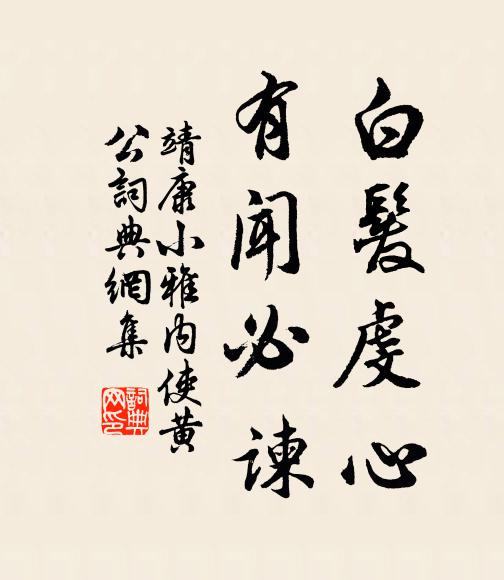 白髮虔心
有聞必諫
靖康小雅內使黃
公詞典網集
詞典網印